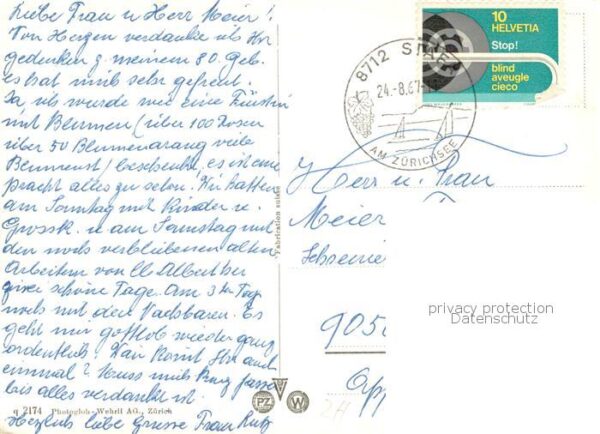 Liebe Frau u Herr Meier!
Von Herzen verdanke ich Ihr
gedenken z. meinem 80. Geb.
es hat mich sehr gefreut.
Ja, ich wurde wie eine Fürstin
mit Blumen (über 100 Rosen
über 50 Blumenarang viele
Blumenst) beschenkt, es ist eine
pracht alles zu sehen! Wir hatten
am Sonntag mit Kinder u.
Grossk. u am Samstag mit
den noch verbliebenen alten
Arbeitern von
schöne Tage. Am 3ten Tag
noch mit den Es
geht mir gottlob wieder ganz
ordentlich. Wan komt Ihr auch
einmal? Muss mich kurz fassen
bis alles verdankt ist.
Herzlich liebe Grüsse Frau
q 2174 Photoglob-Wehrli AG., Zürich
Fabrication suisse
PZ W
8712 STÄFA
24.-8.67
AM ZÜRICHSEE
10
HELVETIA
Stop!
blind
aveugle
cieco
Herr u. Frau
Meier
Schreine
905
App
privacy protection
Datenschutz